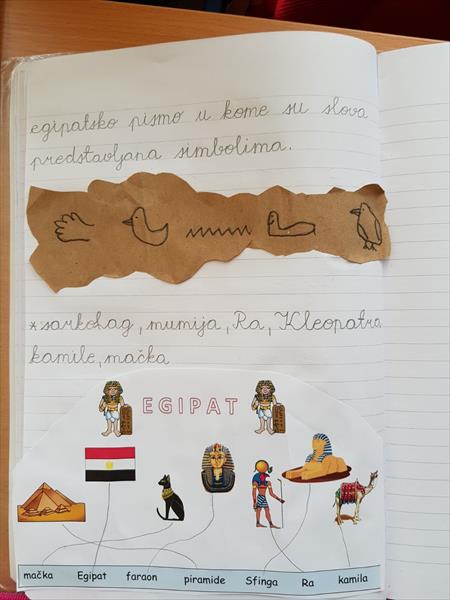 egipatsko pismo u kome su slova
predstavljana simbolima.
*sarkofag, mumija, Ra, Kleopatra,
kamile, mačka
EGIPAT
mačka Egipat faraon piramide Sfinga Ra kamila